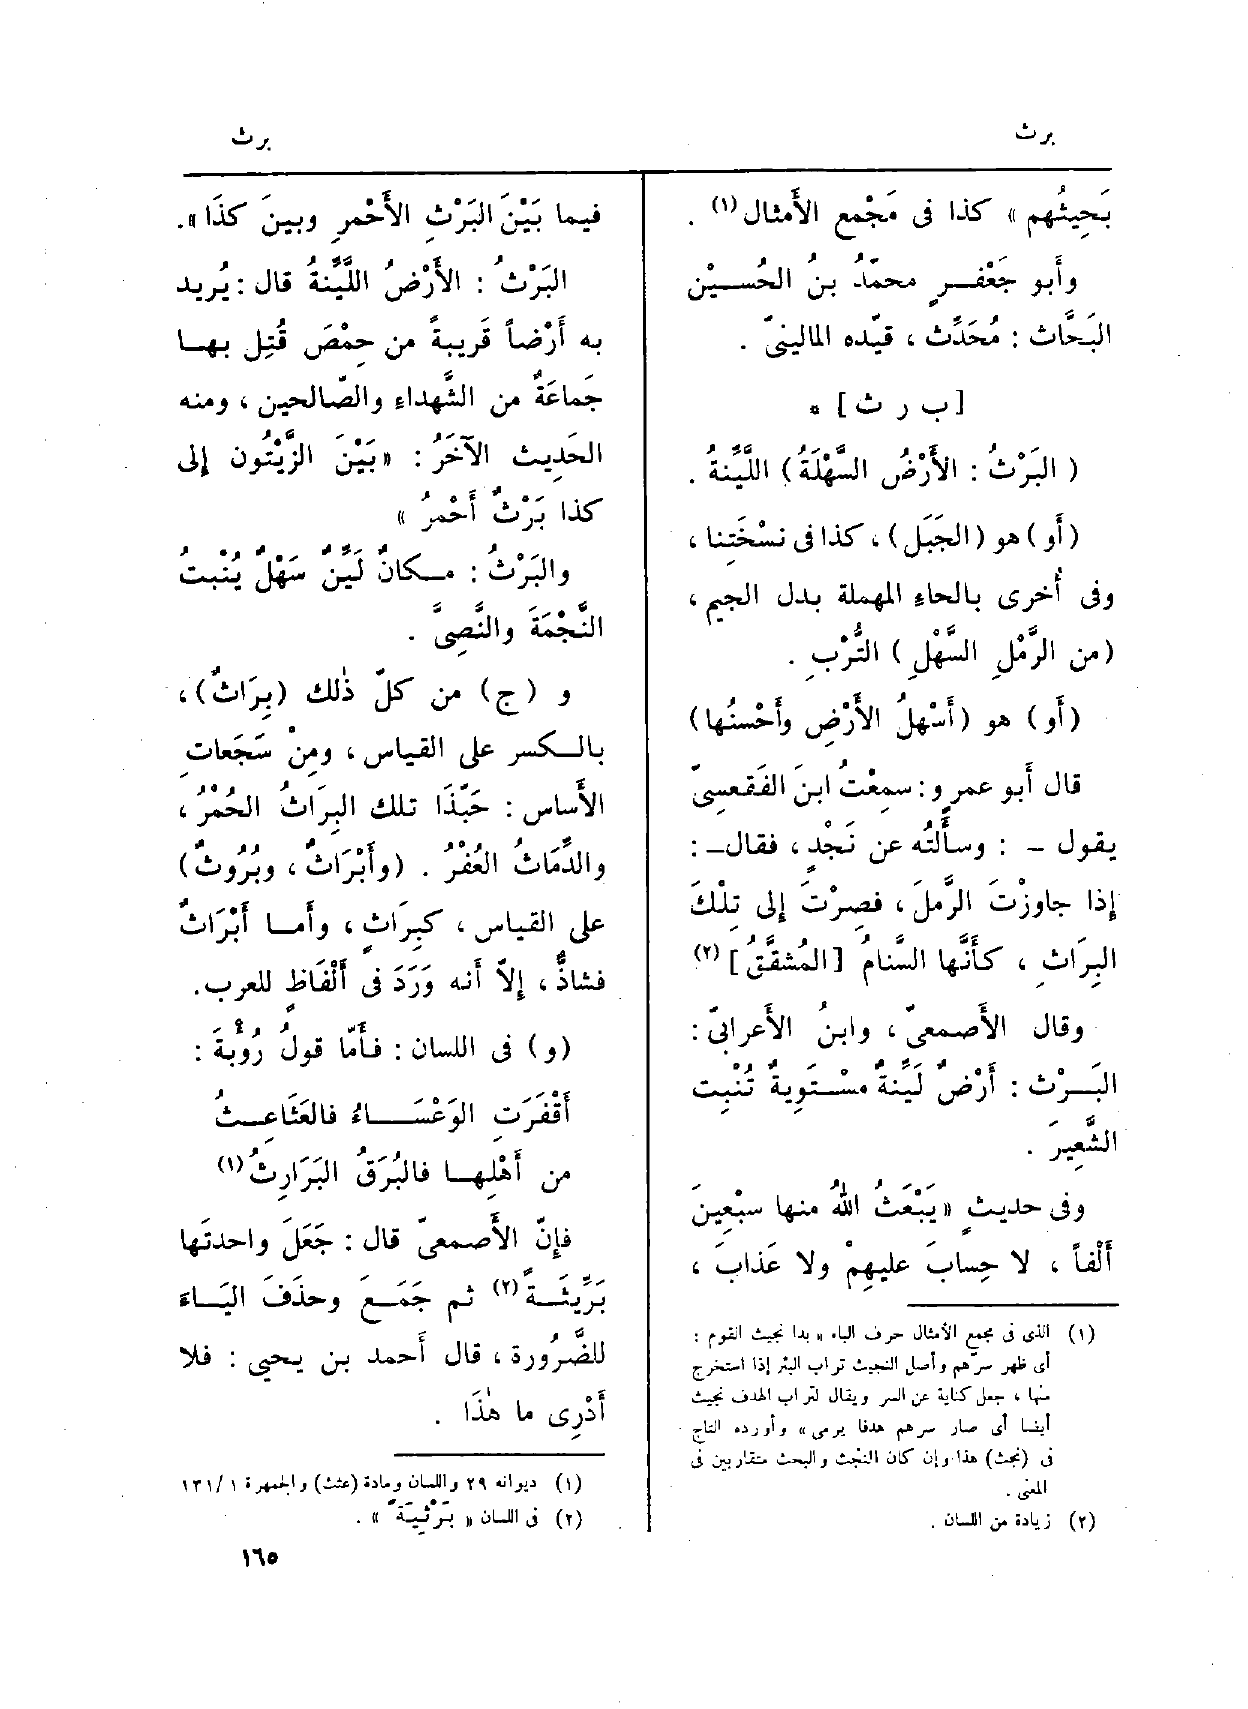 برث
برث
بَحِيثُهم » كذا فى مَجْمع الأَمثال (١) .
وأَبو جَعْفرٍ محمّدُ بنُ الحُسيْن
البَحَّاث : مُحَدِّث ، قيّده المالينىّ .
[ ب ر ث ] *
( البَرْثُ : الأَرْضُ السَّهْلَةُ ) اللَّيِّنةُ .
(أَو) هو (الجَبَل) ، كذا فى نسْخَتِنا ،
وفى أُخرى بالحاءِ المهملة بدل الجيم ،
(من الرَّمْلِ السَّهْلِ ) التُّرْبِ .
(أَو) هو (أَسْهلُ الأَرْضِ وأَحْسنُها)
قال أَبو عمرٍو : سمِعْتُ ابنَ الفَقعسِىّ
يقول - : وسأَلتُه عن نَجْدٍ ، فقال- :
إِذا جاوزْتَ الرَّملَ ، فصِرْتَ إِلى تِلْكَ
البِرَاثِ ، كأَنَّها السَّنامُ [المُشقَّقُ] (٢)
وقال الأَصمعىّ ، وابنُ الأَعرابىّ :
البَرْث : أَرْضٌ لَيِّنةٌ مسْتوِيةٌ تُنْبِت
الشَّعِيرَ .
وفى حديثٍ « يَبْعَثُ اللهُ منها سبْعِينَ
أَلْفاً ، لا حِسابَ عليهِمْ ولا عَذابَ ،
(١) الذى فى مجمع الأمثال حرف الباء « بدا نجيث القوم :
أى ظهر سرّهم وأصل النجيث تراب البئر إذا استخرج
منها ، جعل كناية عن السر ويقال لتراب الهدف نجيث
أيضا أى صار سرهم هدفا يرمى » وأورده التاج
فى (نجث) هذا وإن كان النجث والبحث متقاربين فى
المعنى .
(٢) زيادة من اللسان .
فيما بَيْنَ البَرْثِ الأَحْمرِ وبينَ كذَا » .
البَرْثُ : الأَرْضُ اللَّيِّنةُ قال : يُريد
به أَرْضاً قَرِيبةً من حِمْصَ قُتِل بها
جَماعَةٌ من الشُّهداءِ والصّالحين ، ومنه
الحَدِيث الآخَرُ : « بَيْنَ الزَّيْتُون إِلى
كذا بَرْثٌ أَحْمرُ »
والبَرْثُ : مكانٌ لَيِّنٌ سَهْلٌ يُنْبِتُ
النَّجْمَةَ والنَّصِىَّ .
و (ج) من كلّ ذٰلك (بِرَاثٌ) ،
بالكسر على القياس ، ومِنْ سَجَعاتِ
الأَساس : حَبّذَا تلك البِرَاثُ الحُمْرُ ،
والدِّمَاثُ العُفْرُ . (وأَبْرَاثٌ ، وبُرُوثٌ)
على القياس ، كبِرَاثٍ ، وأَما أَبْرَاثٌ
فشاذٌّ ، إِلاَّ أَنه وَرَدَ فى أَلْفَاظٍ للعرب .
(و) فى اللسان : فأَمّا قولُ رُؤْبةَ :
أَقْفَرَتِ الوَعْسَاءُ فالعَثَاعِثُ
من أَهْلِها فالبُرَقُ البَرَارِثُ (١)
فإِنّ الأَصمعىّ قال : جَعَلَ واحدتَها
بَرِّيثَةً (٢) ثم جَمَعَ وحذَفَ اليَاءَ
للضَّرُورة ، قال أَحمد بن يحيى : فلا
أَدْرِى ما هٰذَا .
(١) ديوانه ٢٩ واللسان ومادة (عثث) والجمهرة ١/ ١٣١
(٢) فى اللسان « بَرْثِيَةً » .
١٦٥